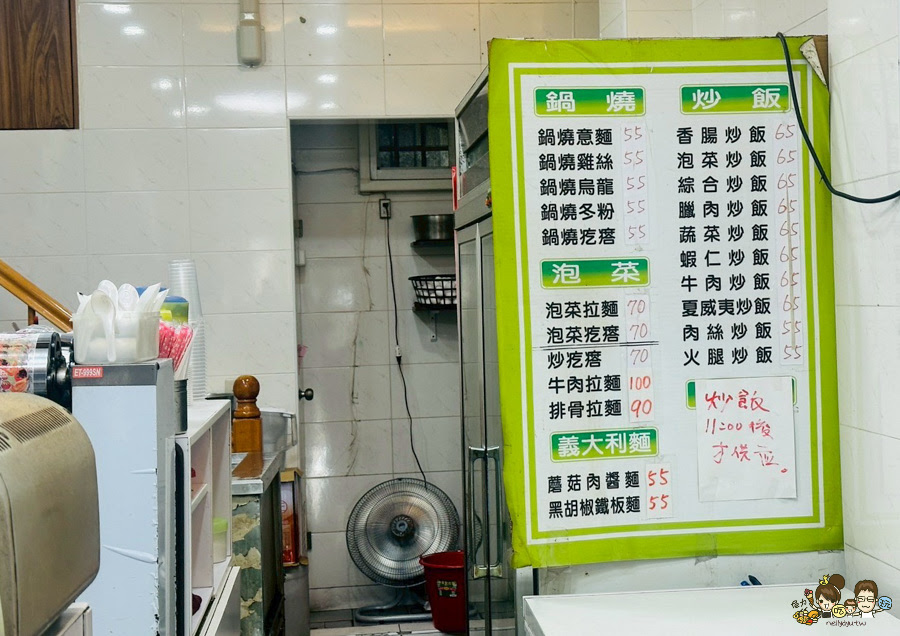 鍋燒
鍋燒意麵 55
鍋燒雞絲 55
鍋燒烏龍 55
鍋燒冬粉 55
鍋燒疙瘩 55
泡菜
泡菜拉麵 70
泡菜疙瘩 70
炒疙瘩 70
牛肉拉麵 100
排骨拉麵 90
義大利麵
蘑菇肉醬麵 55
黑胡椒鐵板麵 55
炒飯
香腸炒飯 65
泡菜炒飯 65
綜合炒飯 65
臘肉炒飯 65
蔬菜炒飯 65
蝦仁炒飯 65
牛肉炒飯 65
夏威夷炒飯 65
肉絲炒飯 55
火腿炒飯 55
炒飯
11:00後
才供應。
ET-999SN
nellyou.tw